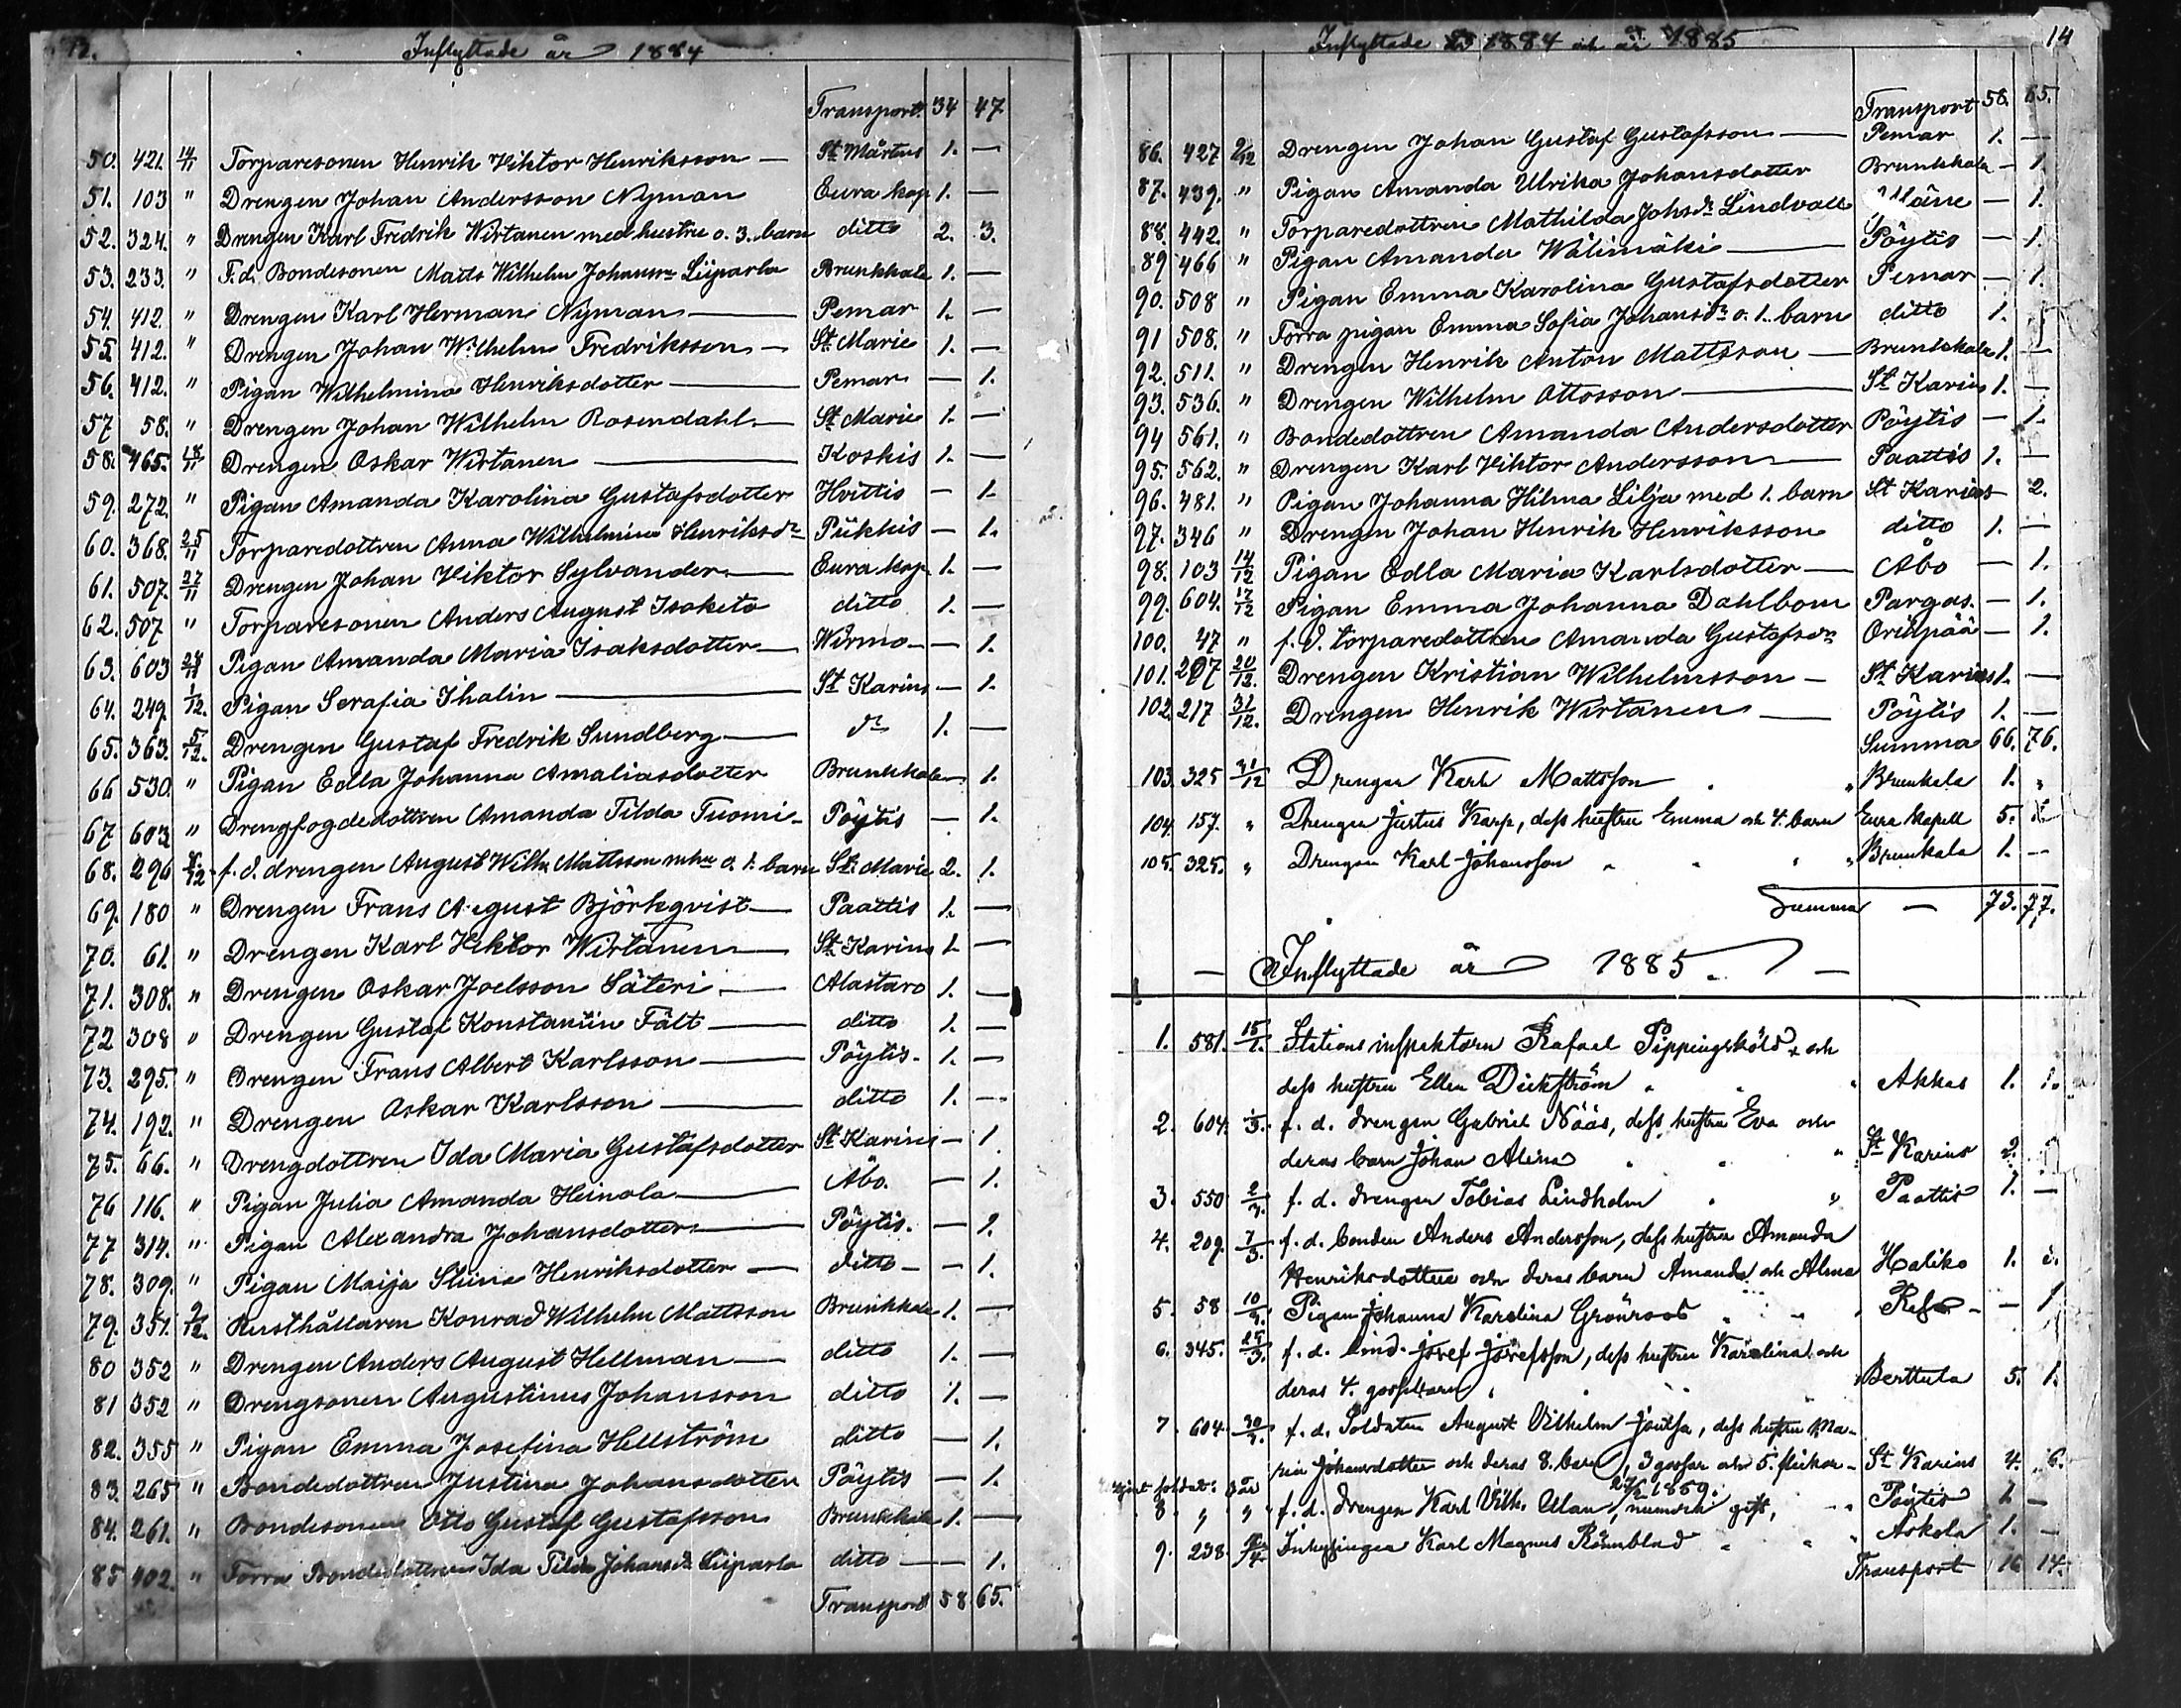 12.
Inflyttade år 1884
Transport 34 47
50. 421. 14/11 Torparesonen Henrik Viktor Henriksson — St Mårtens 1. —
51. 103 " Drengen Johan Andersson Nyman Eura kap 1. —
52. 324. " Drengen Karl Fredrik Wirtanen med hustru o. 3. barn ditto 2. 3.
53. 233. " F.d. Bondesonen Matts Wilhelm Johanssn Liiparla Brunkkala 1. —
54. 412. " Drengen Karl Herman Nyman — Pemar 1. —
55. 412. " Drengen Johan Wilhelm Fredriksson — St. Marie 1. —
56. 412. " Pigan Wilhelmina Henriksdotter — Pemar — 1.
57 58. " Drengen Johan Wilhelm Rosendahl — St Marie 1. —
58. 465. 18/11 Drengen Oskar Wirtanen — Koskis 1. —
59. 272. " Pigan Amanda Karolina Gustafsdotter Hvittis — 1.
60. 368. 25/11 Torparedottren Anna Wilhelmina Henriksdr Piikkis — 1.
61. 507. 27/11 Drengen Johan Viktor Sylvander — Eura kap. 1. —
62. 507 " Torparesonen Anders August Isoketo ditto 1. —
63. 603 Pigan Amanda Maria Isaksdotter — Wirmo — 1.
64. 249. 1/12. Pigan Serafia Ihalin — St Karins — 1.
65. 363. 5/12. Drengen Gustaf Fredrik Sundberg — do 1. —
66 530. " Pigan Edla Johanna Amaliasdotter Brunkkala — 1.
67 603 " Drengfogdedottren Amanda Tilda Tuomi — Pöytis — 1.
68. 296 f. d. drengen August Wilh. Mattsson m hu o. 1. barn St. Marie 2. 1.
69. 180 " Drengen Frans August Björkqvist — Paattis 1. —
70. 61. " Drengen Karl Viktor Wirtanen — St. Karins 1. —
71. 308. " Drengen Oskar Joelsson Säteri — Alastaro 1. —
72 308 " Drengen Gustaf Konstantin Fält — ditto 1. —
73. 295. " Drengen Frans Albert Karlsson — Pöytis. 1. —
74. 192. " Drengen Oskar Karlsson — ditto 1. —
75. 66. " Drengdottren Ida Maria Gustafsdotter St. Karins — 1
76 116. " Pigan Julia Amanda Heinola — Åbo. — 1.
77 314. " Pigan Alexandra Johansdotter — Pöytis. — 1.
78. 309. " Pigan Maija Stina Henriksdotter — ditto — 1.
79. 351. 9/12. Rusthållaren Konrad Wilhelm Mattsson Brunkkala 1. —
80 352 " Drengen Anders August Hellman — ditto 1. —
81 352 " Drengsonen Augustinus Johansson ditto 1. —
82. 355 " Pigan Emma Josefina Hellström ditto — 1.
83. 265 " Bondedottren Justina Johansdotter Pöytis — 1.
84. 261. " Bondesonen Otto Gustaf Gustafsson Brunkkala 1. —
85 402. " Förra Bondedottren Ida Tilda Johansdr Liiparla ditto — 1.
Transport 58 65.
Inflyttade år 1884 och år 1885
14
Transport 58. 65.
86. 427 9/12 Drengen Johan Gustaf Gustafsson — Pemar 1. —
87. 439. " Pigan Amanda Ulrika Johansdotter Brunkkala — 1.
88. 442. " Torparedottren Mathilda Johsdr Lindvall — 1.
89 466 " Pigan Amanda Wälimäki — Pöytis — 1.
90. 508 " Pigan Emma Karolina Gustafsdotter Pemar — 1.
91 508. " Förra pigan Emma Sofia Johansdr o. 1. barn ditto 1.
92. 511. " Drengen Henrik Anton Mattsson — Brunkkala 1. —
93. 536. " Drengen Wilhelm Ottosson — St. Karins 1. —
94 561. " Bondedottren Amanda Andersdotter Pöytis — 1.
95. 562. " Drengen Karl Viktor Andersson — Paattis 1. —
96. 481. " Pigan Johanna Hilma Lilja med 1. barn St Karins — 2.
97. 346 " Drengen Johan Henrik Henriksson ditto 1. —
98. 103 14/12 Pigan Edla Maria Karlsdotter — Åbo — 1.
99. 604. 17/12 Pigan Emma Johanna Dahlbom Pargas. — 1.
100. 47 " f. d. torparedottren Amanda Gustafsdr Oripää — 1.
101. 207 20/12. Drengen Kristian Wilhelmsson — St. Karins 1. —
102. 217 31/12. Drengen Henrik Wirtanen — Pöytis 1. —
Summa 66. 76.
103. 325 31/12 Drengen Karl Mattsson " Brunkala 1. "
104. 157. " Drengen Justus Karp, dess hustru Emma och 4. barn Eura kapell 5.
105. 325. " Drengen Karl Johansson " Brunkala 1. —
Summa — 73. 77.
— Inflyttade år 1885. —
1. 581. 15/1. Stationsinspektorn Rafael Pippingsköld och
dess hustru Ellen Dickström " Akkas 1. 1.
2. 604. f. d. drengen Gabriel Nääs, dess hustru Eva och
deras barn Johan Alina " St Karins 2.
3. 550 f. d. drengen Tobias Lindholm " Paattis 1. —
4. 209. 7/3. f. d. bonden Anders Andersson, dess hustru Amanda
Henriksdotter och deras barn Amanda och Alma Haliko 1.
5. 58 Pigan Johanna Karolina Grönroos — 1
6. 345. f. d. Josef Josefsson, dess hustru Karolina och
deras 4. gossbarn " Berttula 5. 1.
7 604 f. d. Soldaten August Vilhelm Joutsa, dess hustru Ma-
ria Johansdotter och deras 8. barn, 3 gossar och 5. flickor — St. Karins 4. 6.
1859.
8 " " f. d. drengen Karl Vilh. Ulan, numera gift, Pöytis 1 —
9. 238. Karl Magnus Rönnblad " Askola 1. —
Transport 16 14.